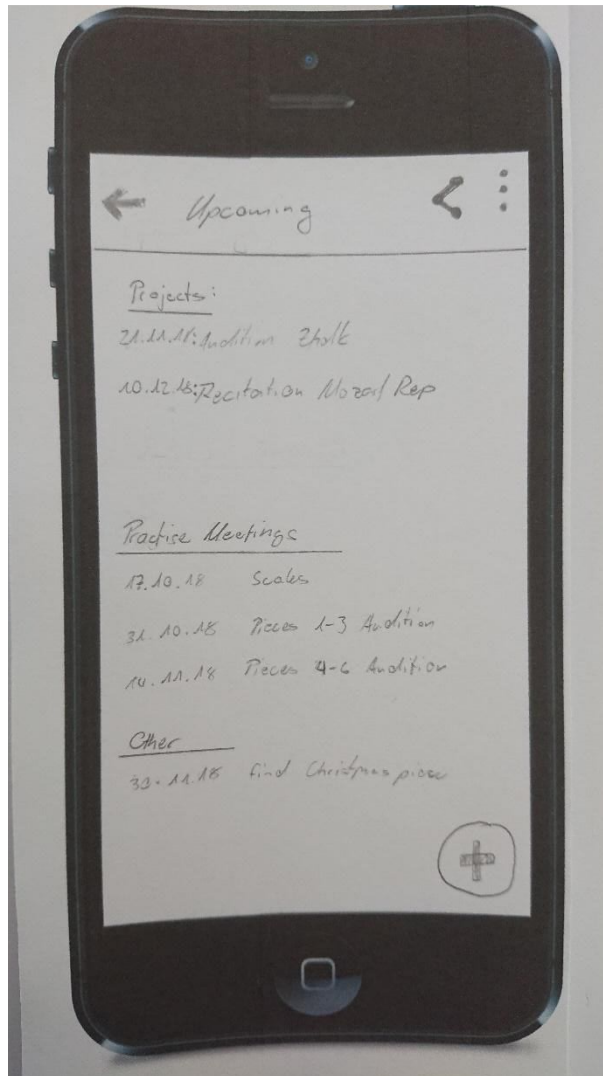 Upcoming
Projects:
21.11.18: Audition
10.12.18: Recitation Mozart Rep
Practise Meetings
17.10.18 Scales
31.10.18 Pieces 1-3 Audition
14.11.18 Pieces 4-6 Audition
Other
30.11.18 find Christmas piece